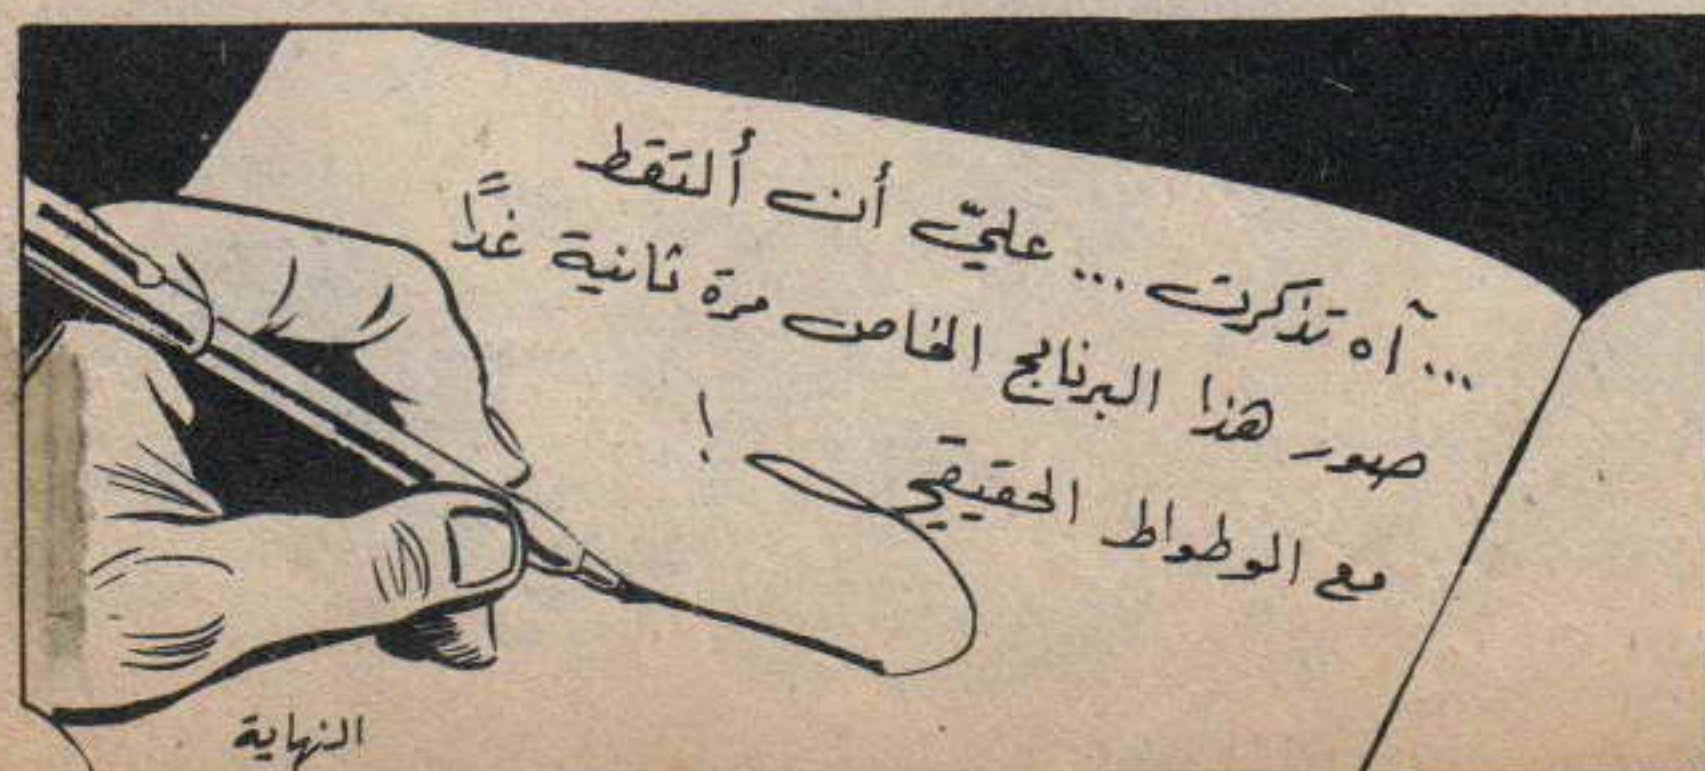 ... آه تذكرت ... عليّ أن أُلتقط
صور هذا البرنامج الخاص مرة ثانية غدًا
مع الوطواط الحقيقي !
النهاية